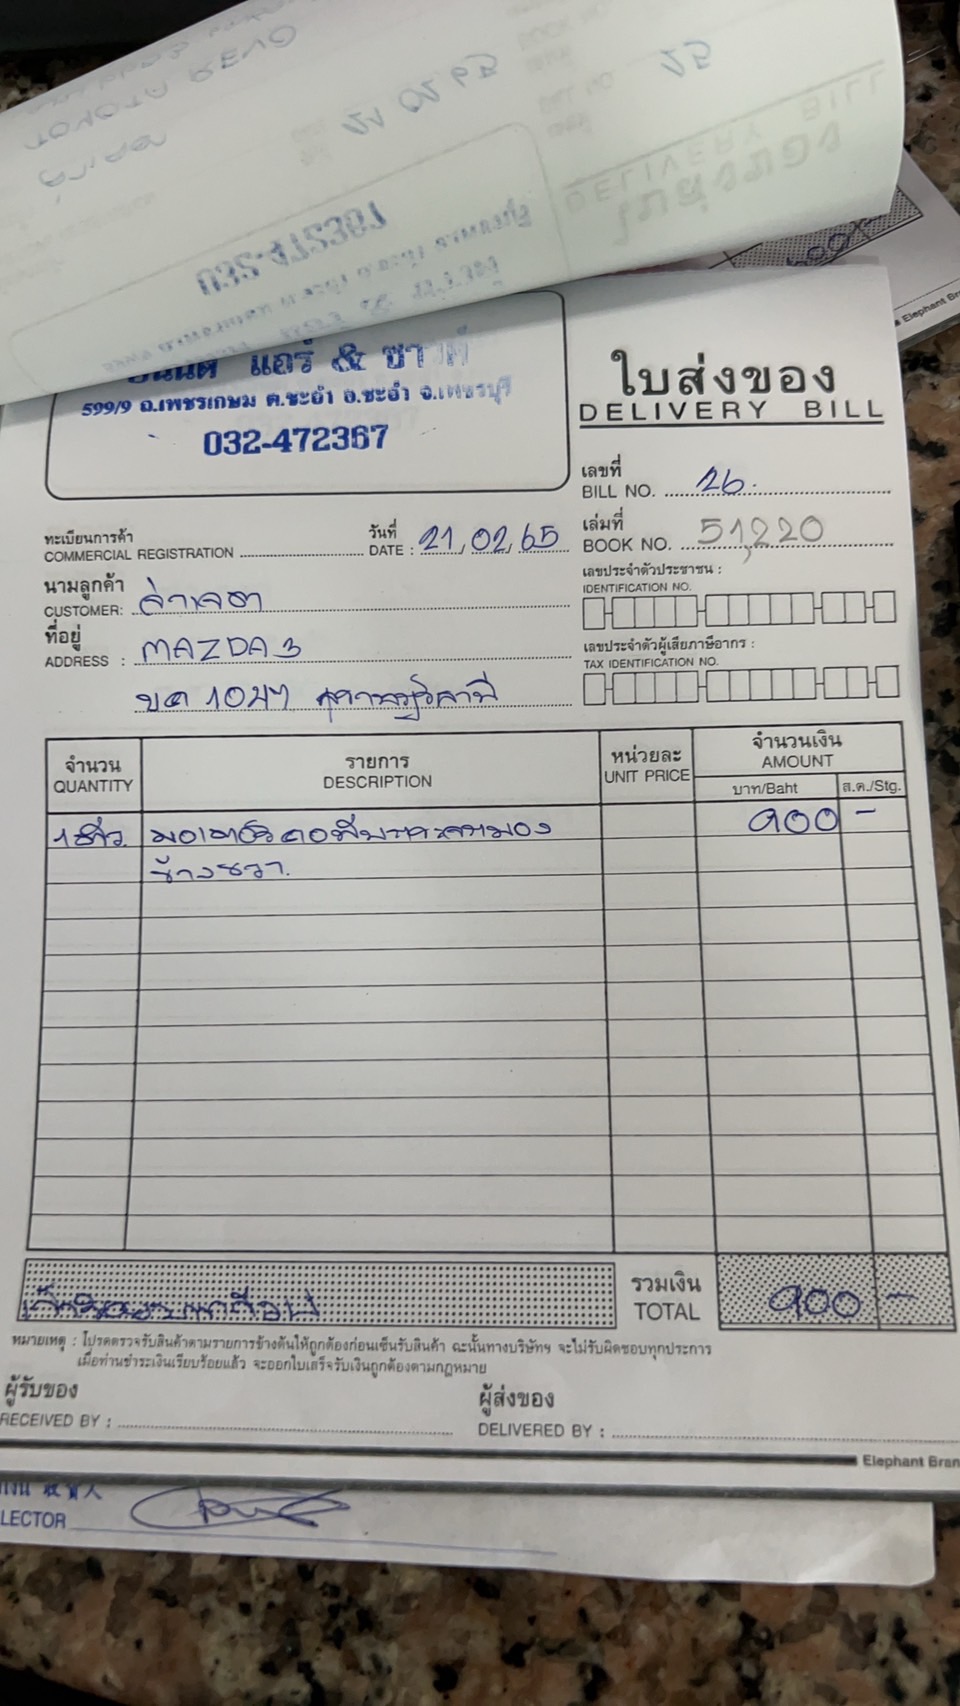 TOYOTA REVO
21 02 65
25
DELIVERY BILL
ใบส่งของ
032-472367
แอร์ & ซาวด์
599/9 ถ.เพชรเกษม ต.ชะอำ อ.ชะอำ จ.เพชรบุรี
032-472367
ใบส่งของ
DELIVERY BILL
เลขที่
BILL NO. 26.
ทะเบียนการค้า
COMMERCIAL REGISTRATION
วันที่
DATE : 21/02/65
เล่มที่
BOOK NO. 51,220
นามลูกค้า
CUSTOMER:
เลขประจำตัวประชาชน :
IDENTIFICATION NO.
ที่อยู่
ADDRESS : MAZDA 3
เลขประจำตัวผู้เสียภาษีอากร :
TAX IDENTIFICATION NO.
ขค 1047
จำนวน
QUANTITY
รายการ
DESCRIPTION
หน่วยละ
UNIT PRICE
จำนวนเงิน
AMOUNT
บาท/Baht
ส.ต./Stg.
1 ตัว มอเตอร์ 900 -
ข้างขวา.
รวมเงิน
TOTAL 900 -
หมายเหตุ : โปรดตรวจรับสินค้าตามรายการข้างต้นให้ถูกต้องก่อนเซ็นรับสินค้า ฉะนั้นทางบริษัทฯ จะไม่รับผิดชอบทุกประการ
เมื่อท่านชำระเงินเรียบร้อยแล้ว จะออกใบเสร็จรับเงินถูกต้องตามกฎหมาย
ผู้รับของ
RECEIVED BY :
ผู้ส่งของ
DELIVERED BY :
Elephant Bran
LECTOR